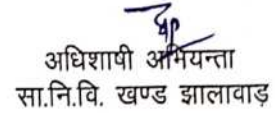 अधिशाषी अभियन्ता
सा.नि.वि. खण्ड झालावाड़